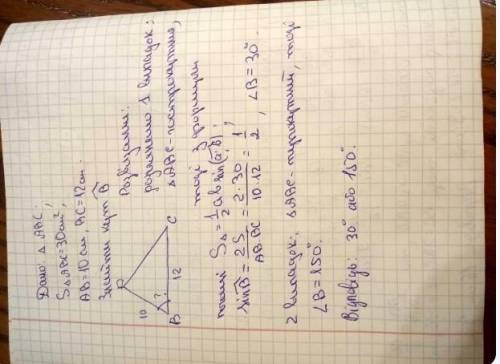 Дано: △ ABC;
S△ABC = 30см²,
AB = 10 см, BC = 12 см.
Знайти кут B̂
B
C
10
12
?
Розв'язання:
1 випадок:
△ABC - гострокутний,
тоді з формули
площі S△ = 1/2 ab sin(a,^b);
sinB̂ = 2S/AB·BC = 2·30/10·12 = 1/2, ∠B = 30°.
2 випадок: △ABC - тупокутний, тоді
∠B = 150°.
Відповідь: 30° або 150°.